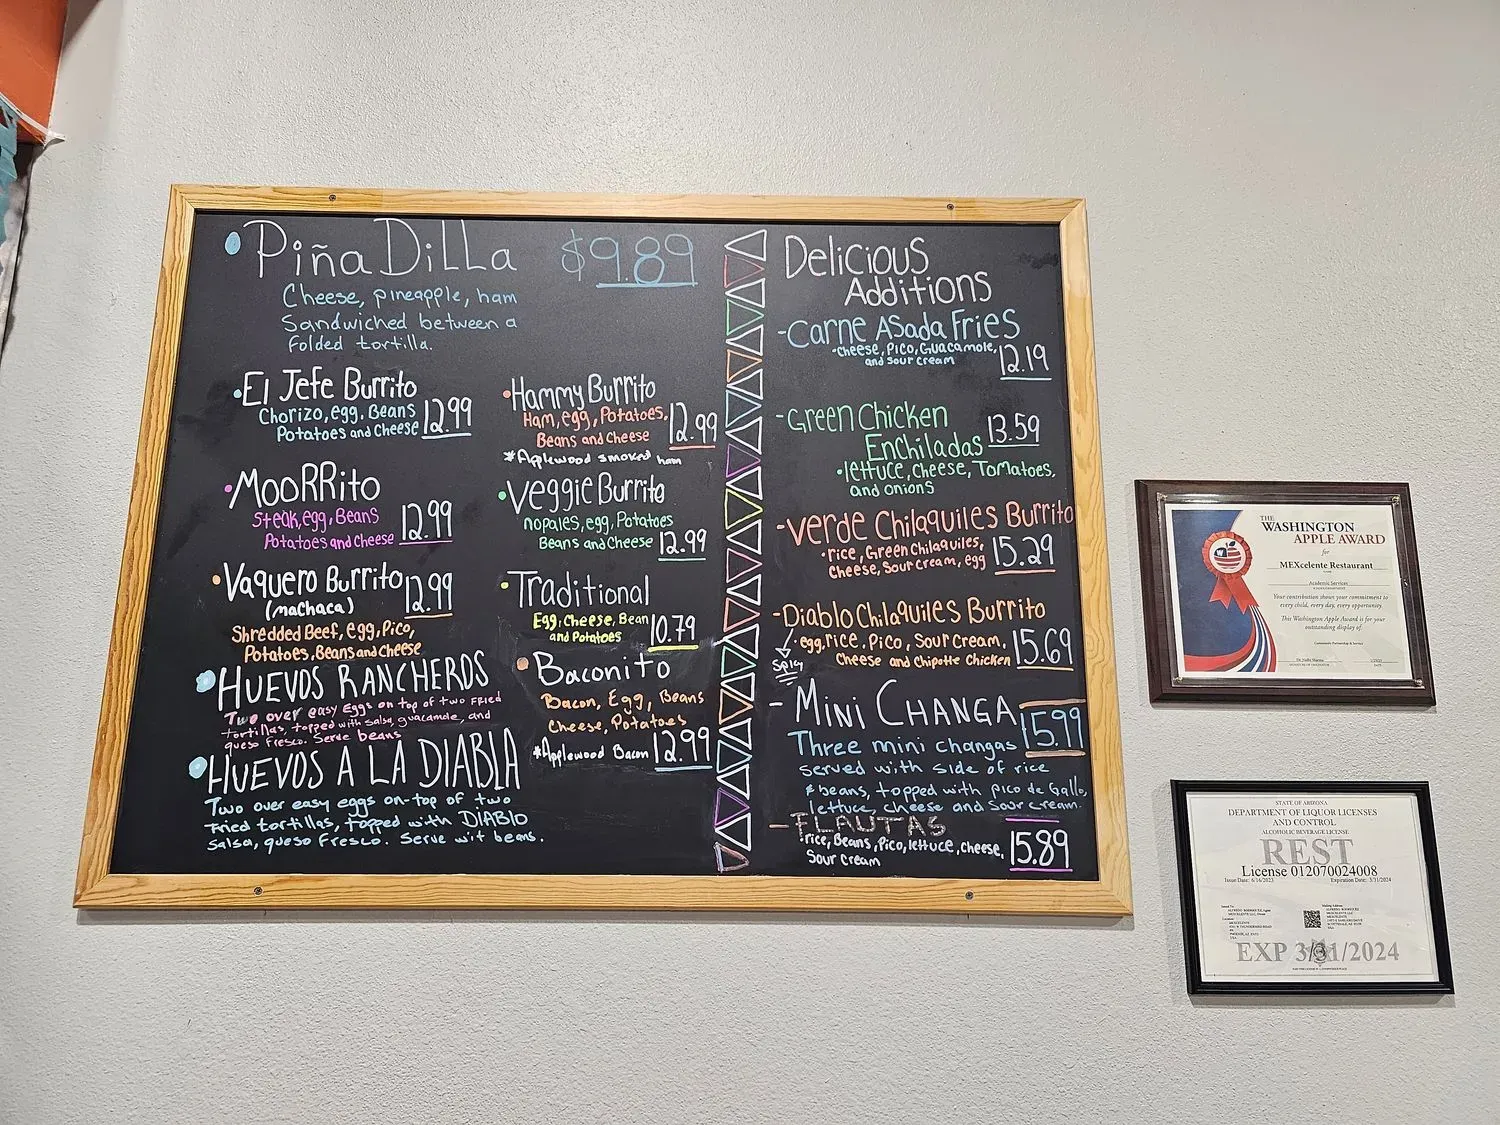 PiñaDiLLa $9.89
Cheese, pineapple, ham
Sandwiched between a
folded tortilla.
El Jefe Burrito
Chorizo, egg, Beans
Potatoes and Cheese 12.99
MooRRito
Steak, egg, Beans
Potatoes and Cheese 12.99
Vaquero Burrito 12.99
(machaca)
Shredded Beef, egg, Pico,
Potatoes, Beans and Cheese
HUEVOS RANCHEROS
Two over easy Eggs on top of two FRIED
tortillas, topped with salsa, guacamole, and
queso Fresco. Serve beans
HUEVOS A LA DIABLA
Two over easy eggs on-top of two
fried tortillas, topped with DIABLO
salsa, queso Fresco. Serve wit beans.
Hammy Burrito
Ham, egg, Potatoes,
Beans and Cheese 12.99
*Applewood smoked ham
Veggie Burrito
nopales, egg, Potatoes
Beans and Cheese 12.99
Traditional
Egg, cheese, Bean
and Potatoes 10.79
Baconito
Bacon, Egg, Beans
Cheese, Potatoes
*Applewood Bacon 12.99
Delicious
Additions
-Carne Asada Fries
•cheese, Pico, Guacamole,
and sour cream 12.19
-Green Chicken
Enchiladas 13.59
•lettuce, cheese, Tomatoes,
and onions
-Verde Chilaquiles Burrito
•rice, Green Chilaquiles,
cheese, sour cream, egg 15.29
-Diablo Chilaquiles Burrito
•egg, rice, Pico, Sour Cream,
Cheese and Chipotle Chicken 15.69
Spicy
- Mini CHANGA
Three mini changas 15.99
served with side of rice
& beans, topped with pico de Gallo,
lettuce, cheese and sour cream.
- FLAUTAS
•rice, Beans, Pico, lettuce, cheese,
Sour cream 15.89
THE
WASHINGTON
APPLE AWARD
for
MEXcelente Restaurant
Academic Services
Your contribution shows your commitment to
every child, every day, every opportunity.
This Washington Apple Award is for your
outstanding display of:
Community Partnership & Service
STATE OF ARIZONA
DEPARTMENT OF LIQUOR LICENSES
AND CONTROL
ALCOHOLIC BEVERAGE LICENSE
REST
License 012070024008
Issue Date: 6/16/2023 Expiration Date: 3/31/2024
EXP 3/31/2024